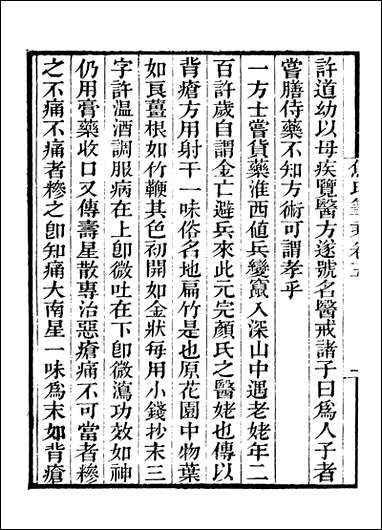 許道幼以母疾覽醫方遂號名醫戒諸子曰爲人子者
嘗膳侍藥不知方術可謂孝乎
一方士嘗貨藥淮西値兵變竄入深山中遇老姥年二
百許歲自謂金亡避兵來此元完顏氏之醫姥也傳以
背瘡方用射干一味俗名地扁竹是也原花園中物葉
如良薑根如竹鞭其色初開如金狀每用小錢抄末三
字許温酒調服病在上卽微吐在下卽微瀉功效如神
仍用膏藥收口又傳壽星散專治惡瘡痛不可當者糝
之不痛不痛者糝之卽知痛大南星一味爲末如背瘡